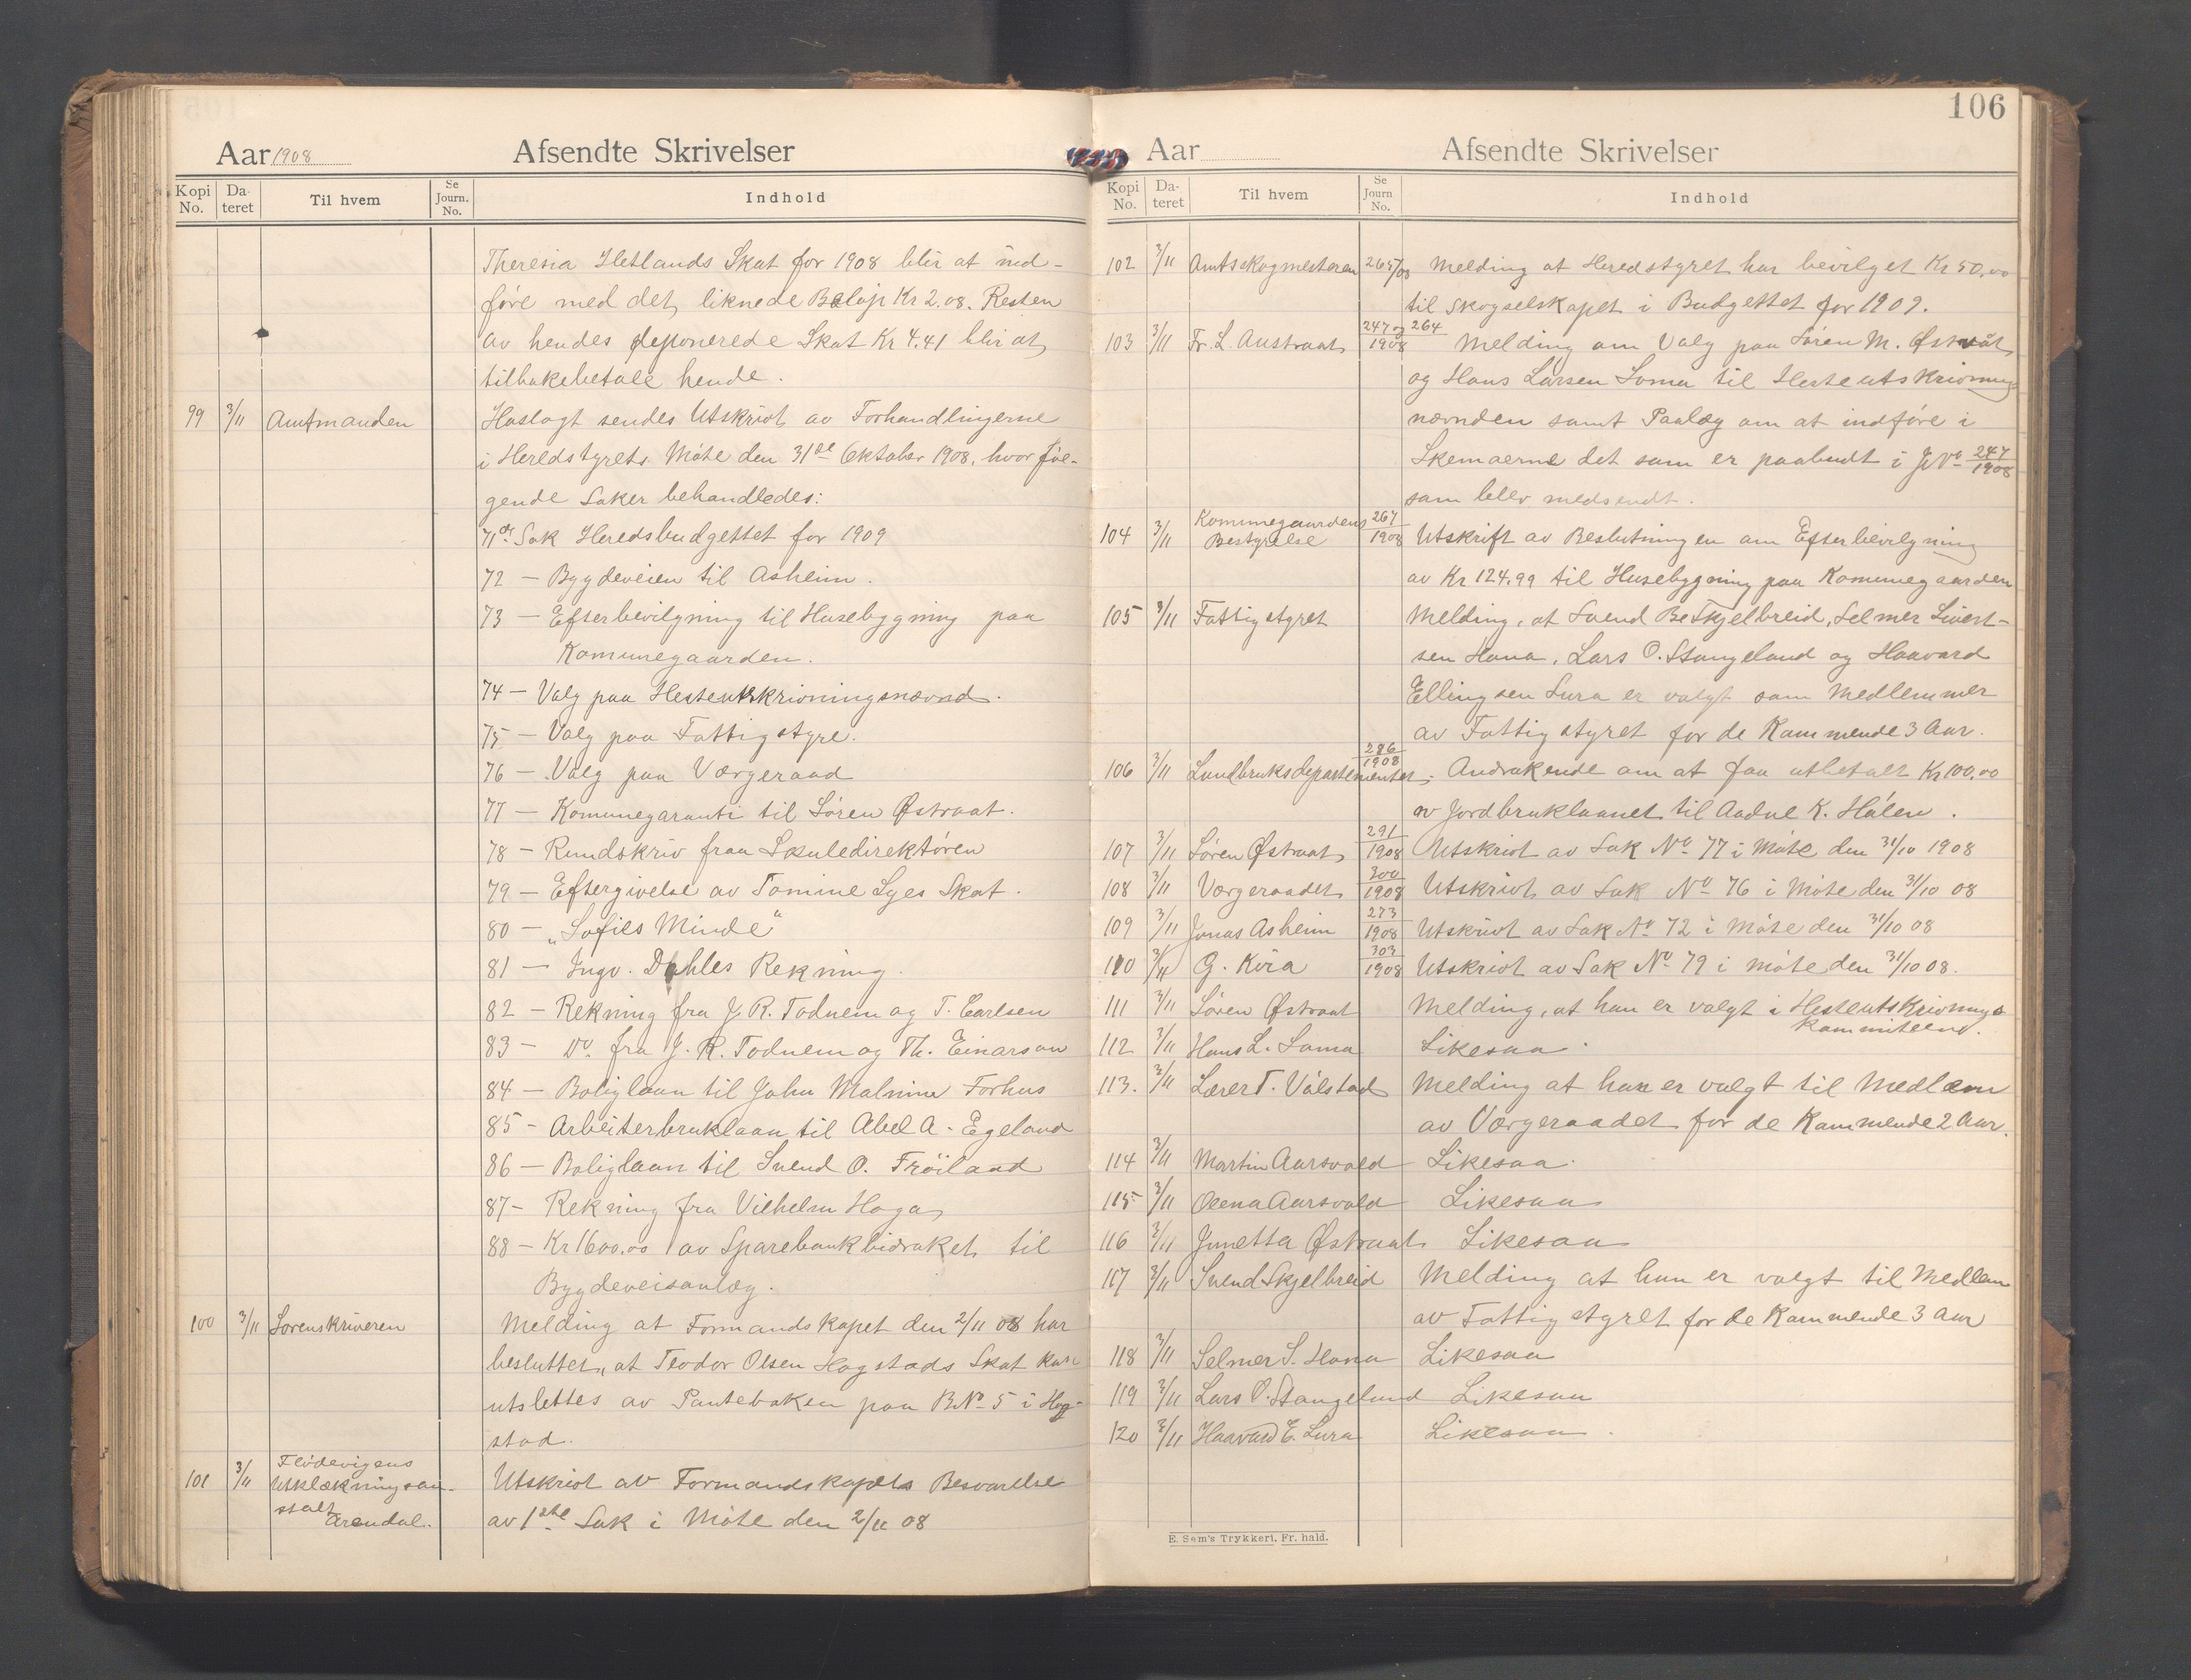 Aar 1908 Afsendte Skrivelser
Kopi No. Da-teret Til hvem Se Journ. No. Indhold
Theresia Hetlands Skat for 1908 blir at ned-
føre med det liknede Beløp Kr 2.08. Resten
av hendes deponerede Skat Kr 4.41 blir at
tilbakebetale hende.
99 3/11 Amtmanden Hoslagt sendes Utskrivt av Forhandlingerne
i Heredstyrets Møte den 31de Oktober 1908, hvor føl-
gende Saker behandledes:
71de Sak Heredsbudgettet for 1909
72 — Bygdeveien til Asheim.
73 — Efterbevilgning til Husebygning paa
Komunegaarden.
74 — Valg paa Hesteutskrivningsnævnd.
75 — Valg paa Fattigstyre.
76 — Valg paa Værgeraad
77 — Komunegaranti til Søren Østraat.
78 — Rundskriv fraa Skuledirektøren
79 — Eftergivelse av Tomine Lyes Skat.
80 — „Sofies Minde"
81 — Ingv. Dahles Rekning.
82 — Rekning fra J. R. Todnem og T. Carlsen
83 — Do. fra J. R. Todnem og Th. Einarson
84 — Boliglaan til John Malmin Forhus
85 — Arbeiterbruklaan til Abel A. Egeland
86 — Boliglaan til Svend O. Frøiland
87 — Rekning fra Vilhelm Hoga
88 — Kr 1600.00 av Sparebankbidraket til
Bygdeveisanlæg.
100 3/11 Sorenskriveren Melding at Formandskapet den 2/11 08 har
besluttet, at Teodor Olsen Hogstads Skat kan
utslettes av Panteboken paa B.No 5 i Hog-
stad.
101 3/11 Flødevigens Utklækningsan-stalt Arendal. Utskrivt av Formandskapets Besvarelse
av 1ste Sak i Møte den 2/11 08
106
Aar Afsendte Skrivelser
Kopi No. Da-teret Til hvem Se Journ No. Indhold
102 3/11 Amtskogmesteren 265/08 Melding at Heredstyret har bevilget Kr 50.00
til Skogselskapet i Budgettet for 1909.
103 3/11 Fr. L. Austraat 247 og 264/1908 Melding om Valg paa Søren M. Østraat
og Hans Larsen Soma til Hesteutskrivnings
nævnden samt Paalæg om at indføre i
Skemaerne det som er paabudt i J.No 247/1908
som blev medsendt.
104 3/11 Komunegaardens Bestyrelse 267/1908 Utskrift av Beslutningen om Efterbevilgning
av Kr 124.99 til Husebygning paa Komunegaarden
105 3/11 Fattigstyret Melding, at Svend B Skjelbreid, Selmer Sivert-
sen Hana, Lars O. Stangeland og Haavard
Ellingsen Lura er valgt som Medlemmer
av Fattigstyret for de Kommende 3 Aar.
106 3/11 Landbruksdepartementet 286/1908 Andrakende om at faa utbetalt Kr 100.00
av Jordbruklaanet til Aadne K. Hålen.
107 3/11 Søren Østraat 291/1908 Utskrivt av Sak No 77 i Møte den 31/10 1908
108 3/11 Værgeraadet 300/1908 Utskrivt av Sak No 76 i Møte den 31/10 08
109 3/11 Jonas Asheim 273/1908 Utskrivt av Sak No 72 i Møte den 31/10 08
110 3/11 G. Kvia 303/1908 Utskrivt av Sak No 79 i Møte den 31/10 08.
111 3/11 Søren Østraat Melding, at han er valgt i Hesteutskrivnings
kommiteend.
112 3/11 Hans L. Soma Likesaa
113. 3/11 Lærer T. Vålstad Melding at han er valgt til Medlem
av Værgeraadet for de Kommende 2 Aar.
114 3/11 Martin Aarsvold Likesaa.
115 3/11 Olena Aarsvold Likesaa
116 3/11 Junetta Østraat Likesaa
117 3/11 Svend Skjelbreid Melding at han er valgt til Medlem
av Fattigstyret for de Kommende 3 Aar
118 3/11 Selmer S. Hana Likesaa
119 3/11 Lars O. Stangeland Likesaa
120 3/11 Haavard E. Lura Likesaa.
E. Sem's Trykkeri, Fr. hald.